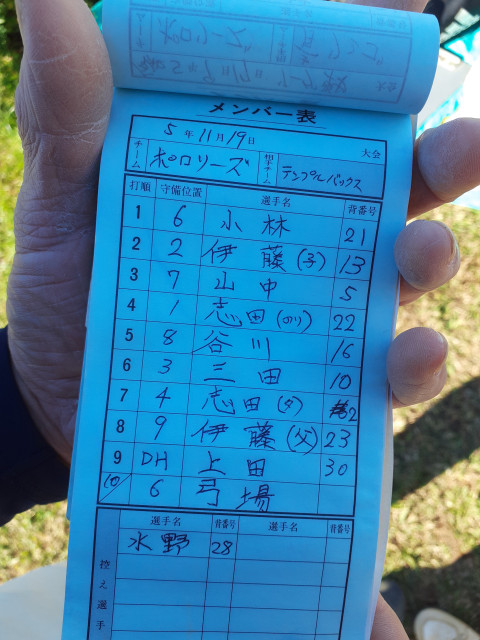 メンバー表
5年11月19日 大会
チーム ポロリーズ 相手チーム テンプルバックス
打順 守備位置 選手名 背番号
1 6 小林 21
2 2 伊藤(子) 13
3 7 山中 5
4 1 志田(のり) 22
5 8 谷川 16
6 3 三田 10
7 4 志田(タ) 2
8 9 伊藤(父) 23
9 DH 上田 30
10 6 弓場
選手名 背番号 選手名 背番号
控え選手
水野 28